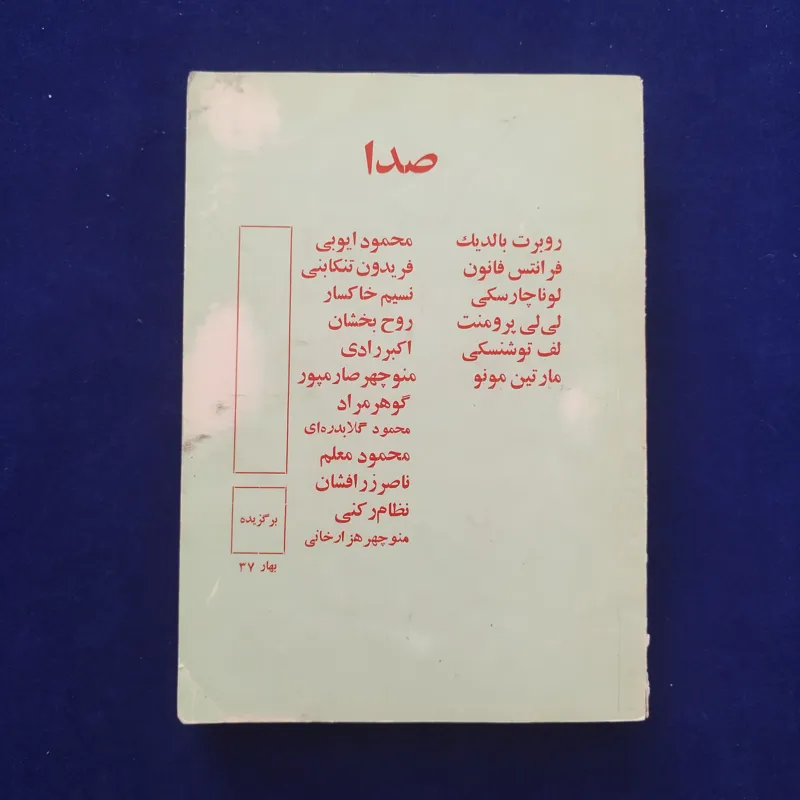 صدا
روبرت بالدیك
فرانتس فانون
لوناچارسکی
لی‌لی پرومنت
لف توشنسکی
مارتین مونو
محمود ایوبی
فریدون تنکابنی
نسیم خاکسار
روح بخشان
اکبررادی
منوچهرصارمپور
گوهرمراد
محمود گلابدره‌ای
محمود معلم
ناصرزرافشان
نظام‌رکنی
منوچهر هزارخانی
برگزیده
بهار ۳۷